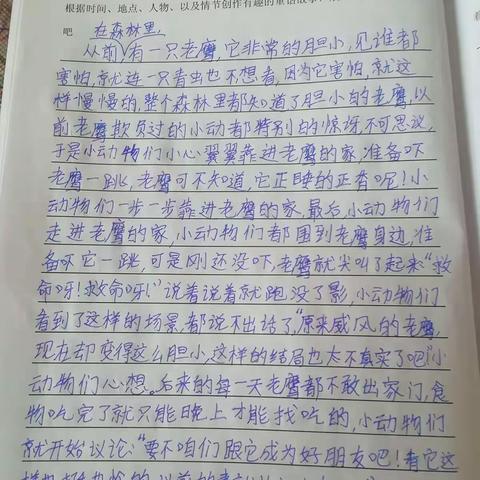 根据时间、地点、人物、以及情节创作有趣的童话故事
吧
在森林里,
从前有一只老鹰,它非常的胆小,见谁都
害怕,就连一只青虫也不想看,因为它害怕,就这
样慢慢的,整个森林里都知道了胆小的老鹰,以
前老鹰欺负过的小动都特别的惊讶,不可思议,
于是小动物们小心翼翼靠进老鹰的家,准备吓
老鹰一跳,老鹰可不知道,它正睡的正香呢!小
动物们一步一步靠进老鹰的家,最后,小动物们
走进老鹰的家,小动物们都围到老鹰身边,准
备吓它一跳,可是刚还没吓,老鹰就尖叫了起来“救
命呀!救命呀!”说着说着就跑没了影,小动物们
看到了这样的场景都说不出话了,“原来威风的老鹰,
现在却变得这么胆小,这样的结局也太不真实了吧!”小
动物们心想。后来的每一天老鹰都不敢出家门,食
物吃完了就只能晚上才能找吃的,小动物们
就开始议论:“要不咱们跟它成为好朋友吧!看它这